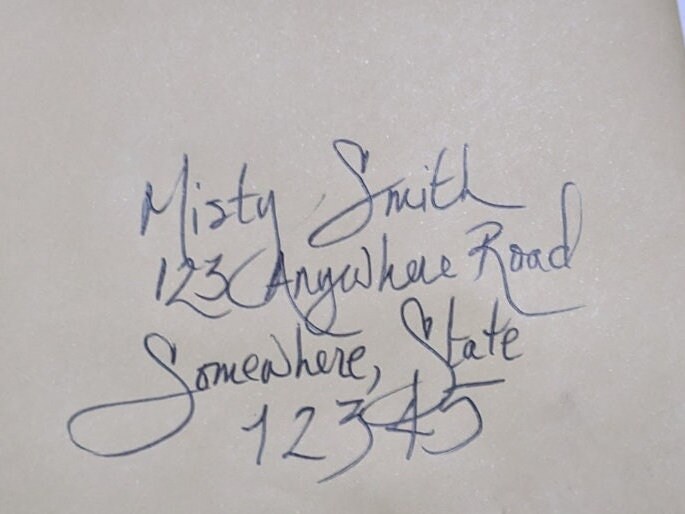 Misty Smith
123 Anywhere Road
Somewhere, State
12345